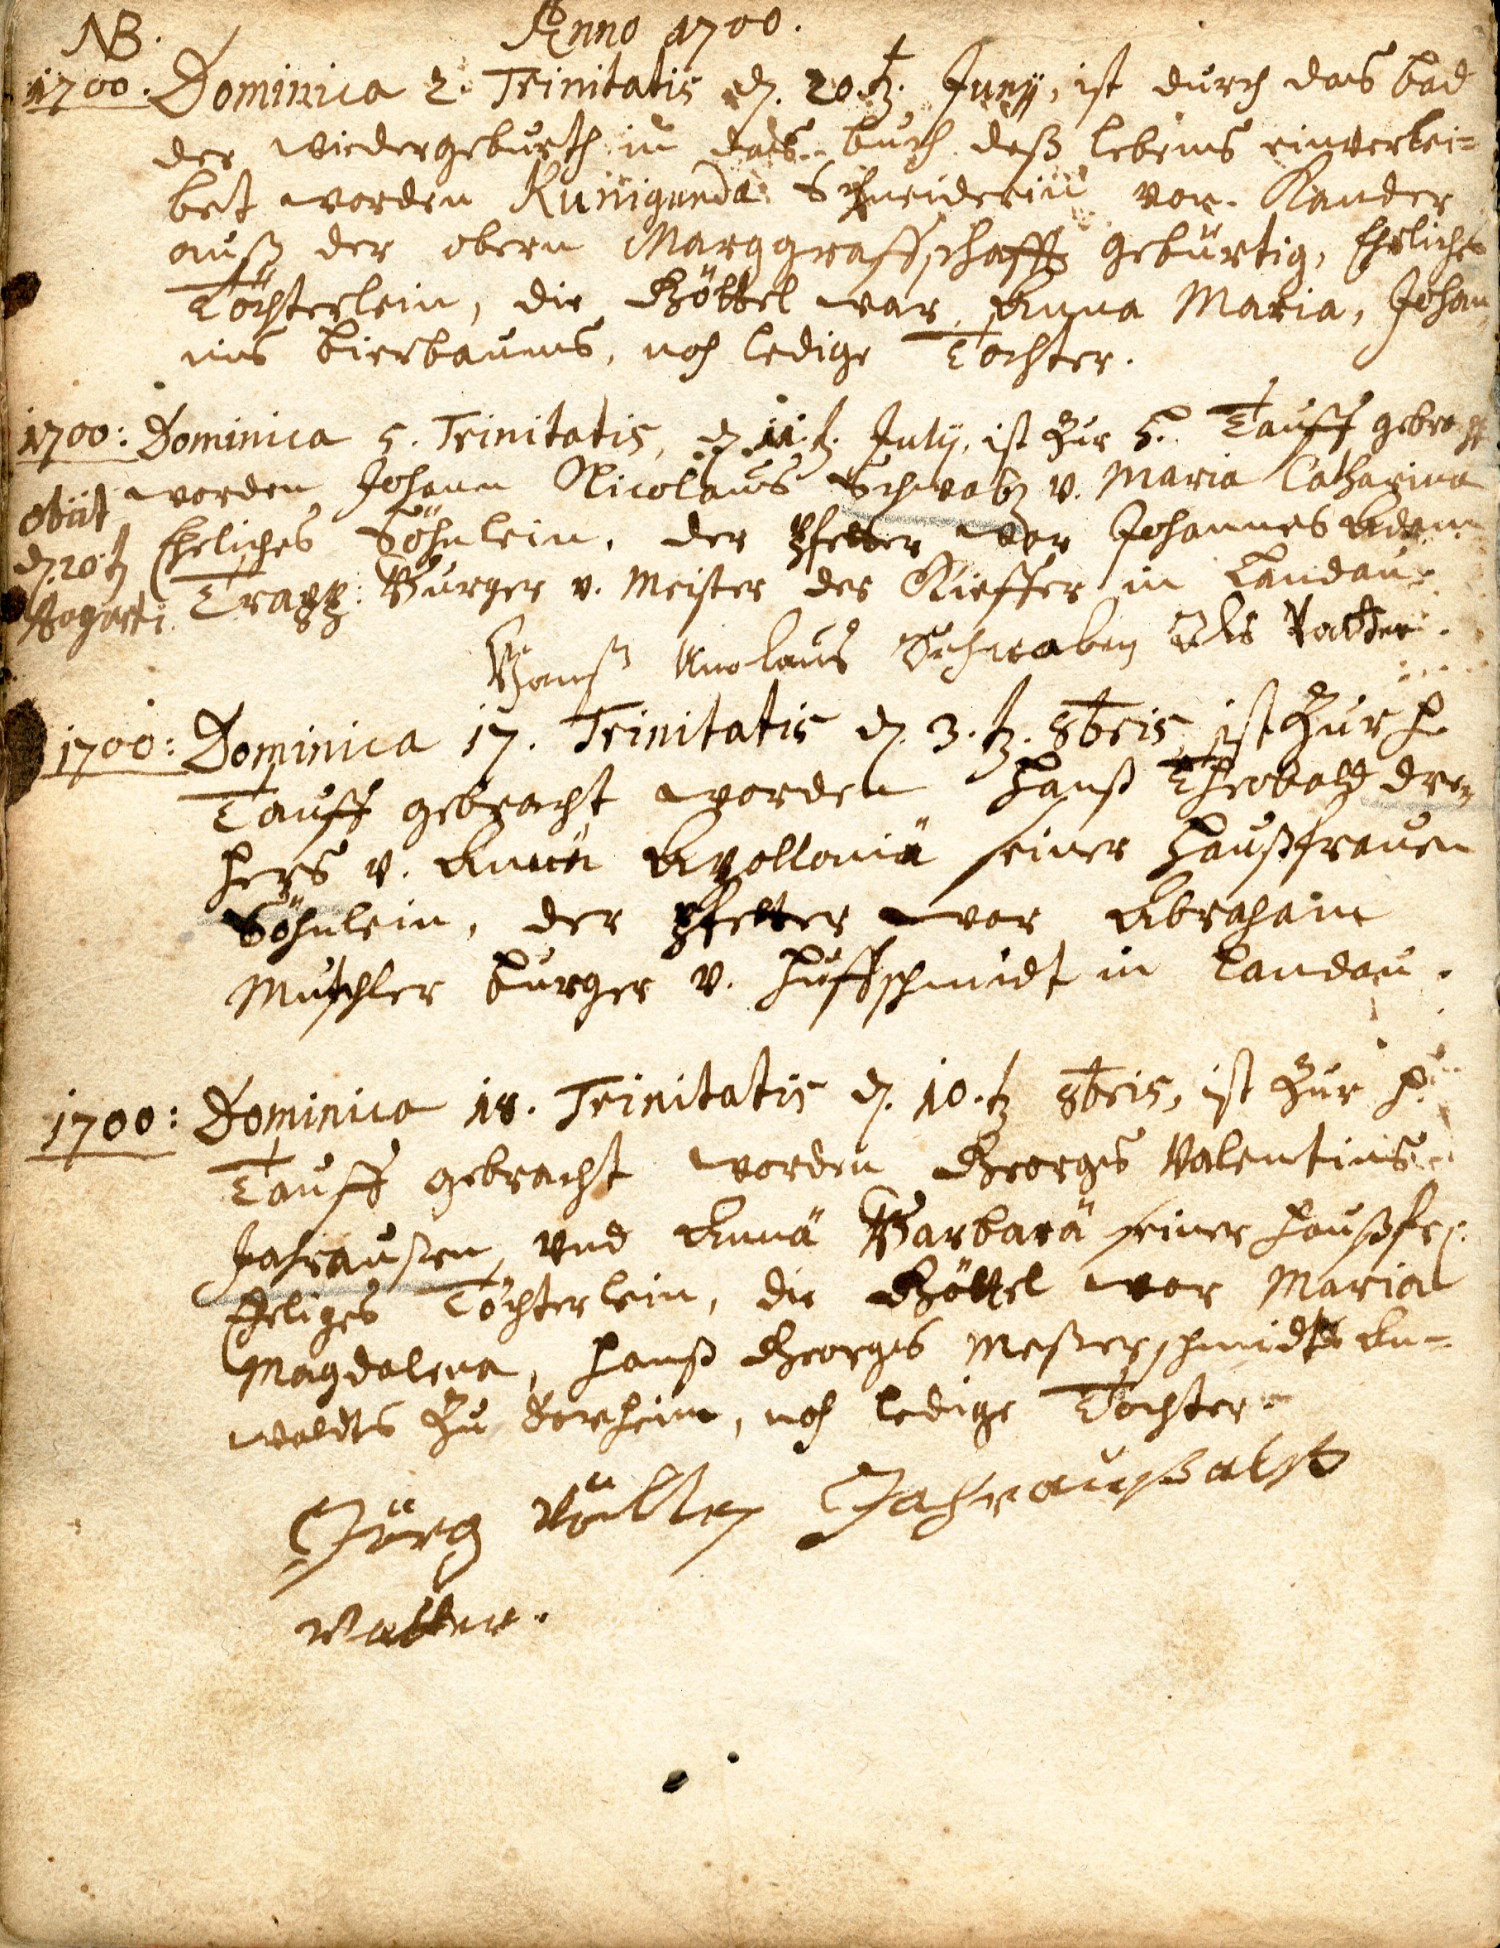 NB.
Anno 1700.
1700. Dominica 2. Trinitatis d. 20.t. Junij, ist durch das bad
der widergeburth in das buch deß lebens einverlei=
bet worden Kunigunda Schneiderin von Kander
auß der obern Marggraffschafft gebürtig, Ehrliches
Töchterlein, die Göttel war Anna Maria, Johan
nis bierbaums, noch ledige Tochter.
1700: Dominica 5. Trinitatis, d. 11.t. Julij, ist zur h. Tauff gebracht
worden Johann Nicolaus Schwab v. Maria Catharina
Eheliches Söhnlein, der Pfetter war Johannes Adam
Trapp: Burger v. Meister der Kieffer in Landau.
obiit
d. 20t
Augusti
Hanß Nicolaus Schwaben Als Vatter.
1700: Dominica 17. Trinitatis d. 3.t. 8bris, ist zur h.
Tauff gebracht worden Hanß Theobald dre=
hers v. Annä Apolloniä seiner Haußfrauen
Söhnlein, der Pfetter war Abraham
Mutschler burger v. Huffschmidt in Landau.
1700: Dominica 18. Trinitatis d. 10.t 8bris, ist zur h.
Tauff gebracht worden Georges Valentins
Jahraußen, und Annä Barbarä seiner haußfr.
Eheliges Töchterlein, die Göttel war Maria
Magdalena, hanß Georges Meßerschmidts An=
waldts zu Dorheim, noch ledige Tochter.
Jörg Vällten Jahrauß alß
Vatter.